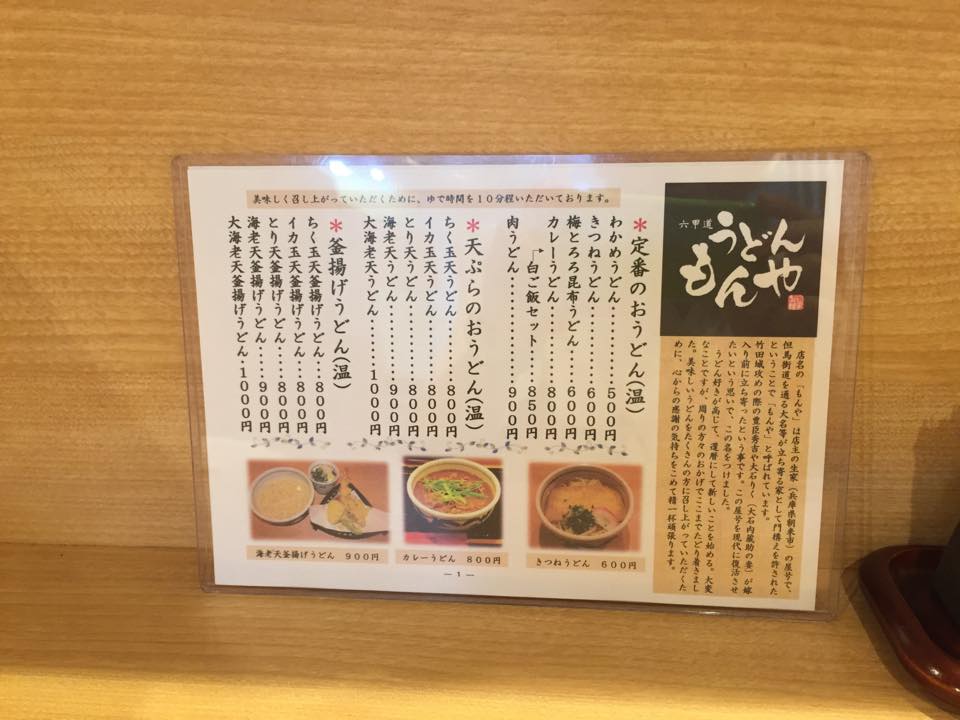 六甲道
うどん
もんや
店名の「もんや」は店主の生家(兵庫県朝来市)の屋号で、
但馬街道を通る大名等が立ち寄る家として門構えを許された
ということで「もんや」と呼ばれています。
竹田城攻めの際の豊臣秀吉や大石りく(大石内蔵助の妻)が嫁
入り前に立ち寄ったという事です。この屋号を現代に復活させ
たいという思いで、この名をつけました。
うどん好きが高じて、還暦にして新しいことを始める。大変
なことですが、周りの方々のおかげでここまでたどり着きまし
た。美味しいうどんをたくさんの方に召し上がっていただくた
めに、心からの感謝の気持ちをこめて精一杯頑張ります。
美味しく召し上がっていただくために、ゆで時間を10分程いただいております。
*定番のおうどん(温)
わかめうどん・・・・・・500円
きつねうどん・・・・・・600円
梅とろろ昆布うどん・・600円
カレーうどん・・・・・・800円
┌白ご飯セット・・・850円
肉うどん・・・・・・・・・900円
*天ぷらのおうどん(温)
ちく玉天うどん・・・・800円
イカ玉天うどん・・・・800円
とり天うどん・・・・・・800円
海老天うどん・・・・・・900円
大海老天うどん・・・・1000円
*釜揚げうどん(温)
ちく玉天釜揚げうどん・・800円
イカ玉天釜揚げうどん・・800円
とり天釜揚げうどん・・・・800円
海老天釜揚げうどん・・・・900円
大海老天釜揚げうどん・1000円
海老天釜揚げうどん 900円
カレーうどん 800円
きつねうどん 600円
— 1 —